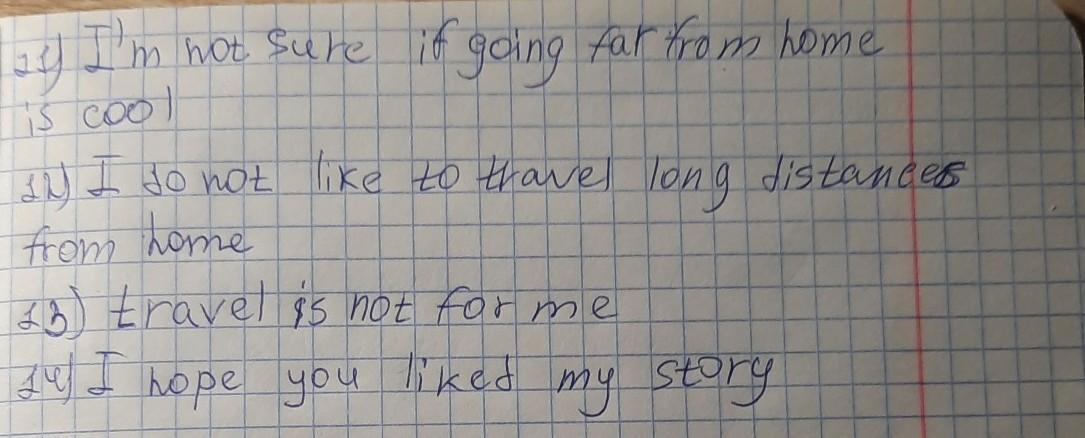 11) I'm not sure if going far from home
is cool
12) I do not like to travel long distances
from home
13) travel is not for me
14) I hope you liked my story